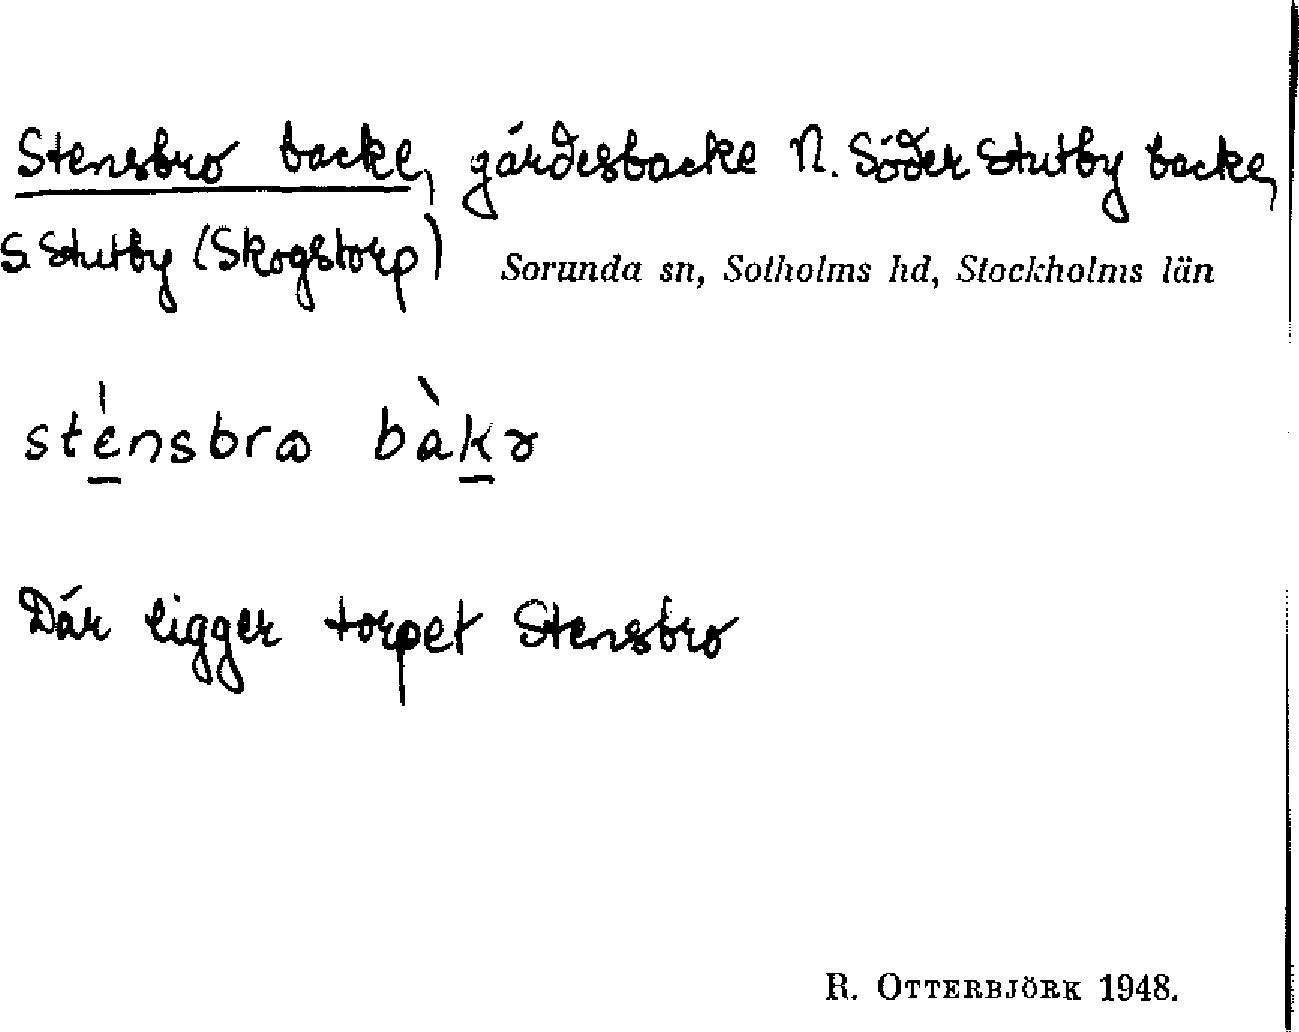 Stensbro backe, gärdesbacke N. Söder Stutby backe,
S. Stutby (Skogstorp) Sorunda sn, Sotholms hd, Stockholms län
sténsbrɷ bàkə
Där ligger torpet Stensbro
R. OTTERBJÖRK 1948.